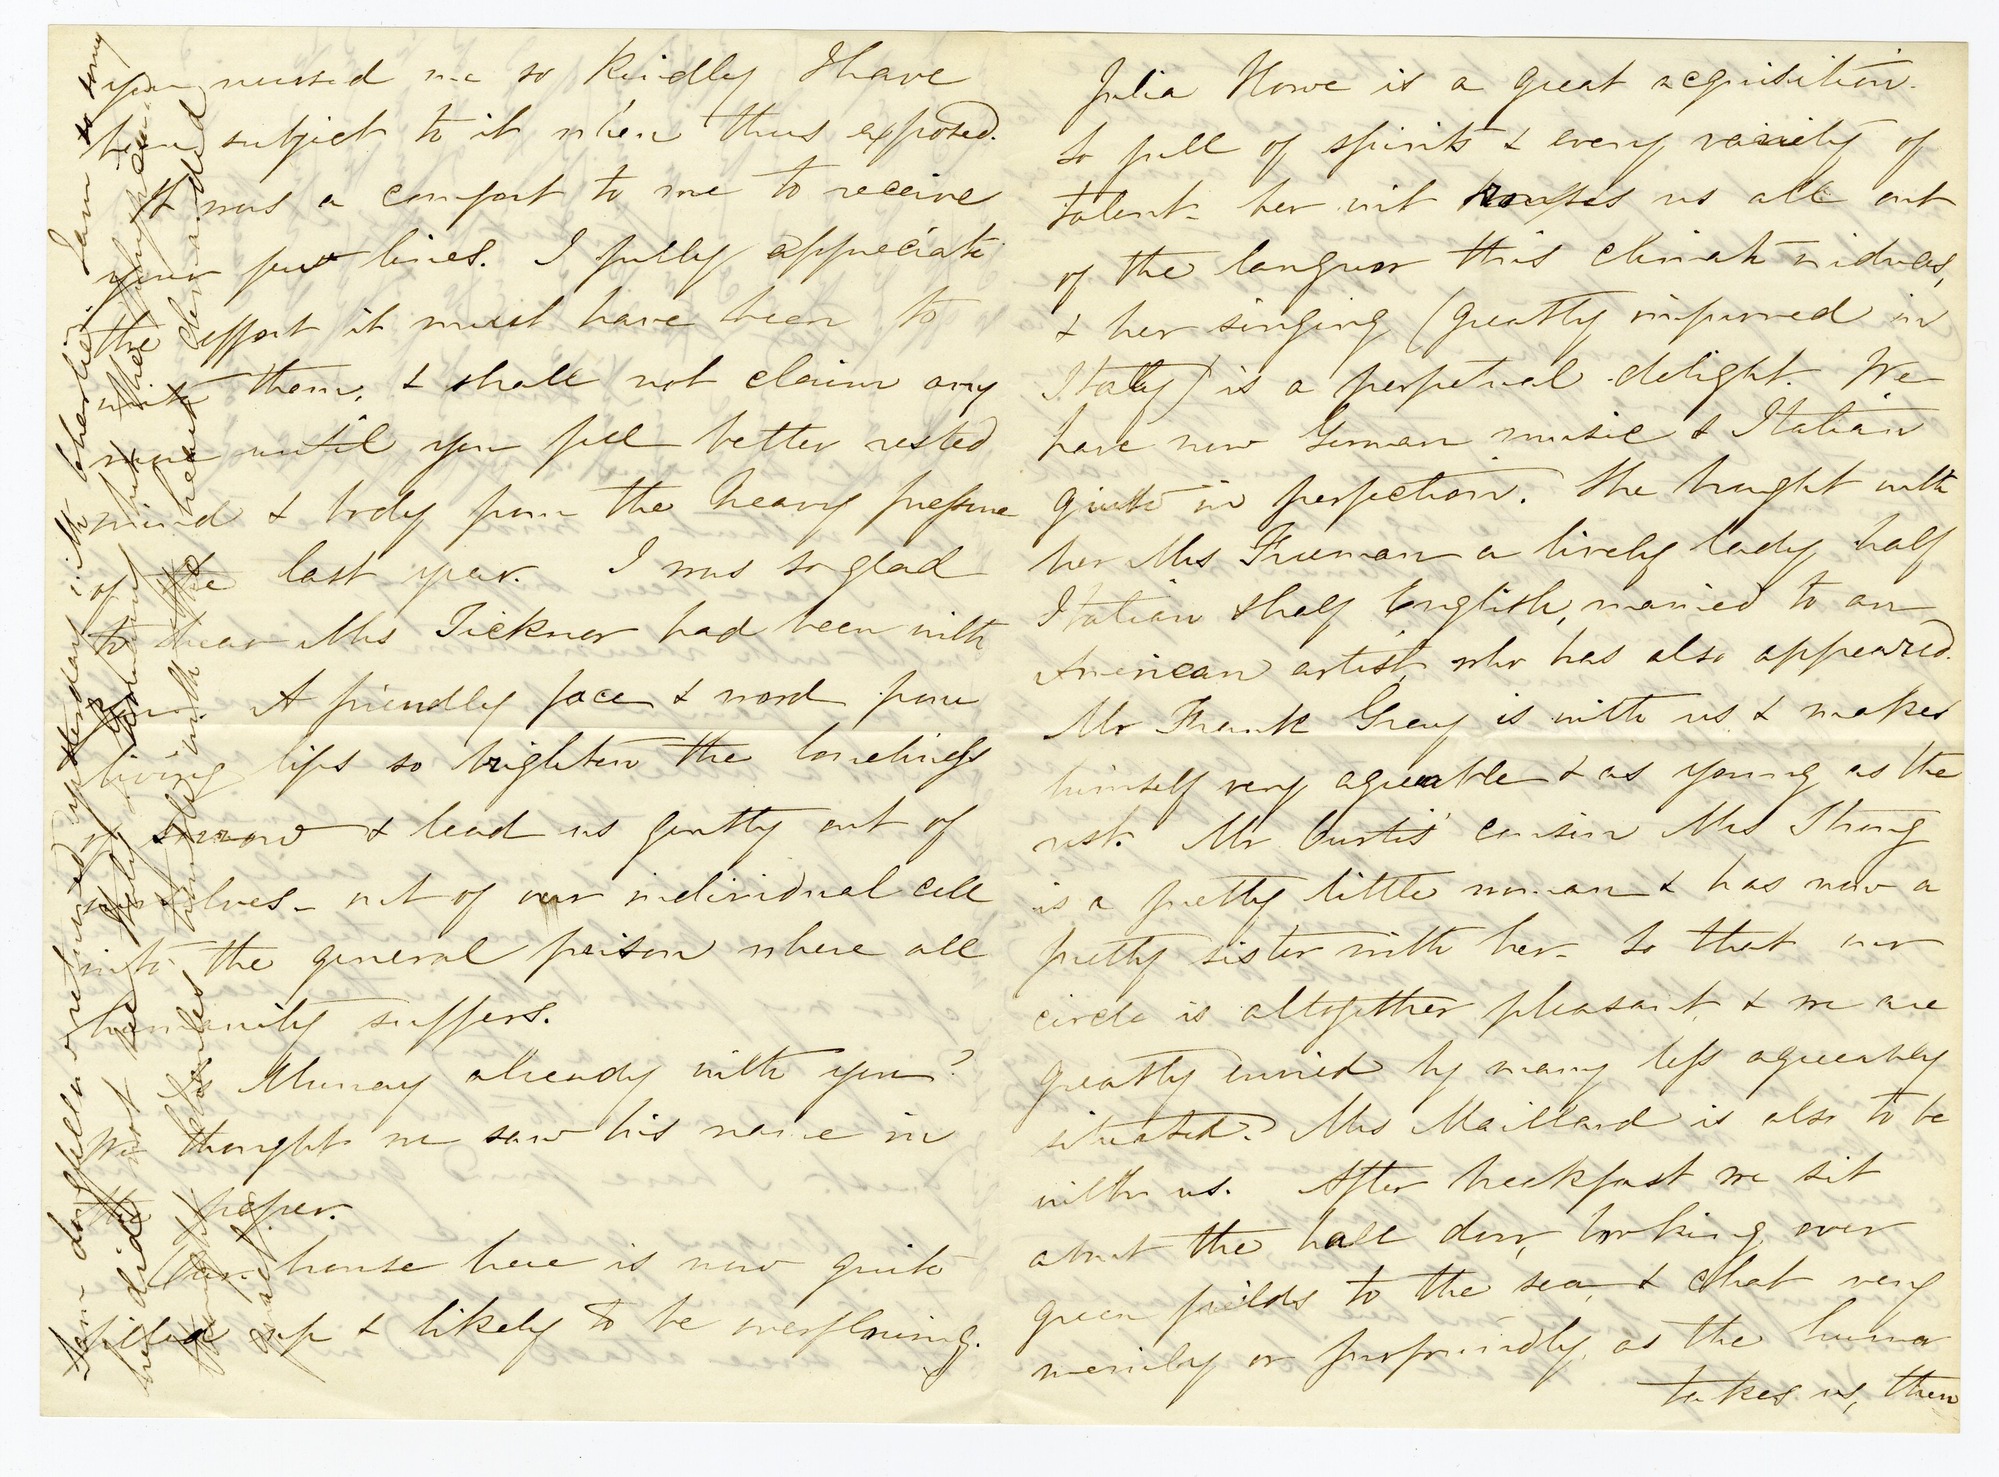 you nursed me so kindly I have
been subject to it when thus exposed.
It was a comfort to me to receive
your few lines. I fully appreciate
the effort it must have been to
write them, & shall not claim any
more until you feel better rested
mind & body from the heavy pressure
of the last year. I was so glad
to hear Mrs Ticknor had been with
you. A friendly face & word from
living lips so brighten the loneliness
of sorrow & lead us gently out of
ourselves – out of our individual cell
into the general prison where all
humanity suffers.
Is Murray already with you?
We thought we saw his name in
the paper.
Our house here is now quite
filled up & likely to be overflowing.
Julia Howe is a great acquisition.
So full of spirits & every variety of
talent – her wit rouses us all out
of the languor this climate induces,
& her singing (greatly improved in
Italy) is a perpetual delight. We
have now German music & Italian
quite in perfection. She brought with
her Mrs Freeman a lively lady half
Italian & half English, married to an
American artist, who has also appeared.
Mr Frank Gray is with us & makes
himself very agreeable & as young as the
rest. Mr Curtis' cousin Mrs Strong
is a pretty little woman & has now a
pretty sister with her – So that our
circle is altogether pleasant, & we are
greatly envied by many less agreeably
situated. Mrs Maillard is also to be
with us. After breakfast we sit
about the hall door, looking over
green fields to the sea, & chat very
merrily or profoundly, as the humor
takes us, then
Longfellow returned yesterday with Charlie. I am so sorry
he did not see